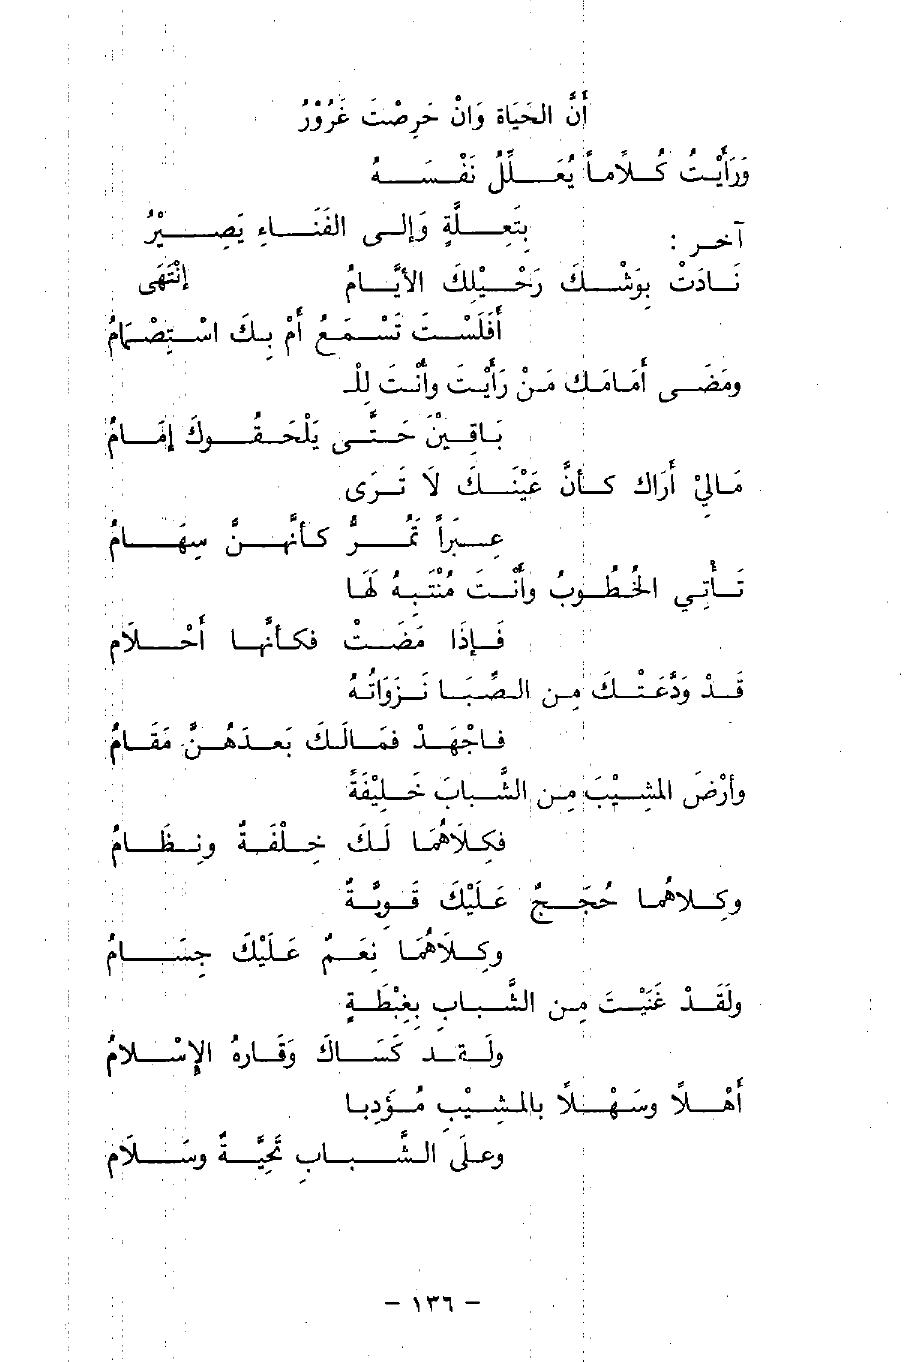 أَنَّ الحَيَاة وَانْ حَرِصْتَ غَرُوْرُ
وَرَأَيْتُ كُلاًماً يُعَلِّلُ نَفْسَهُ
بِتَعِلَّةٍ وَإلى الفَنَاءِ يَصِيْرُ
آخر :
نَادَتْ بِوَشْكَ رَحْيْلِكَ الأيَّامُ إنْتَهَى
أَفَلَسْتَ تَسْمَعُ أَمْ بِكَ اسْتِصْمَامُ
ومَضَى أَمَامَك مَنْ رَأَيْتَ وأَنْتَ لِلْـ
بَاقِيْنَ حَتَّى يَلْحَقُوكَ إمَامُ
مَالِيْ أَرَاك كأنَّ عَيْنَكَ لاَ تَرَى
عِبَراً تَمُرُّ كأنَّهنَّ سِهَامُ
تَأْتِي الخُطُوبُ وأَنْتَ مُنْتَبِهُ لَهَا
فَإذَا مَضَتْ فكأنَّها أَحْلاَم
قَدْ وَدَّعَتْكَ مِن الصِّبَا نَزَوَاتُهُ
فاجْهَدْ فمَالَكَ بَعدَهُنَّ مَقَامُ
وأرْضَ المشِيْبَ مِن الشَّبابَ خَلِيْفَةً
فكِلاَهُمَا لَكَ خِلْفَةٌ ونِظَامُ
وكِلاهُما حُجَجٌ عَلَيْكَ قَوِيَّةٌ
وكِلاَهُمَا نِعَمٌ عَلَيْكَ جِسَامُ
ولَقَدْ غَنَيْتَ مِن الشَّبابِ بِغِبْطَةٍ
ولَقد كَسَاكَ وَقَارهُ الإسْلامُ
أَهْلاً وسَهْلاً بالمشِيْبِ مُؤَدِبا
وعلَى الشَّبابِ تَحِيَّةٌ وسَلاَم
- ١٣٦ -